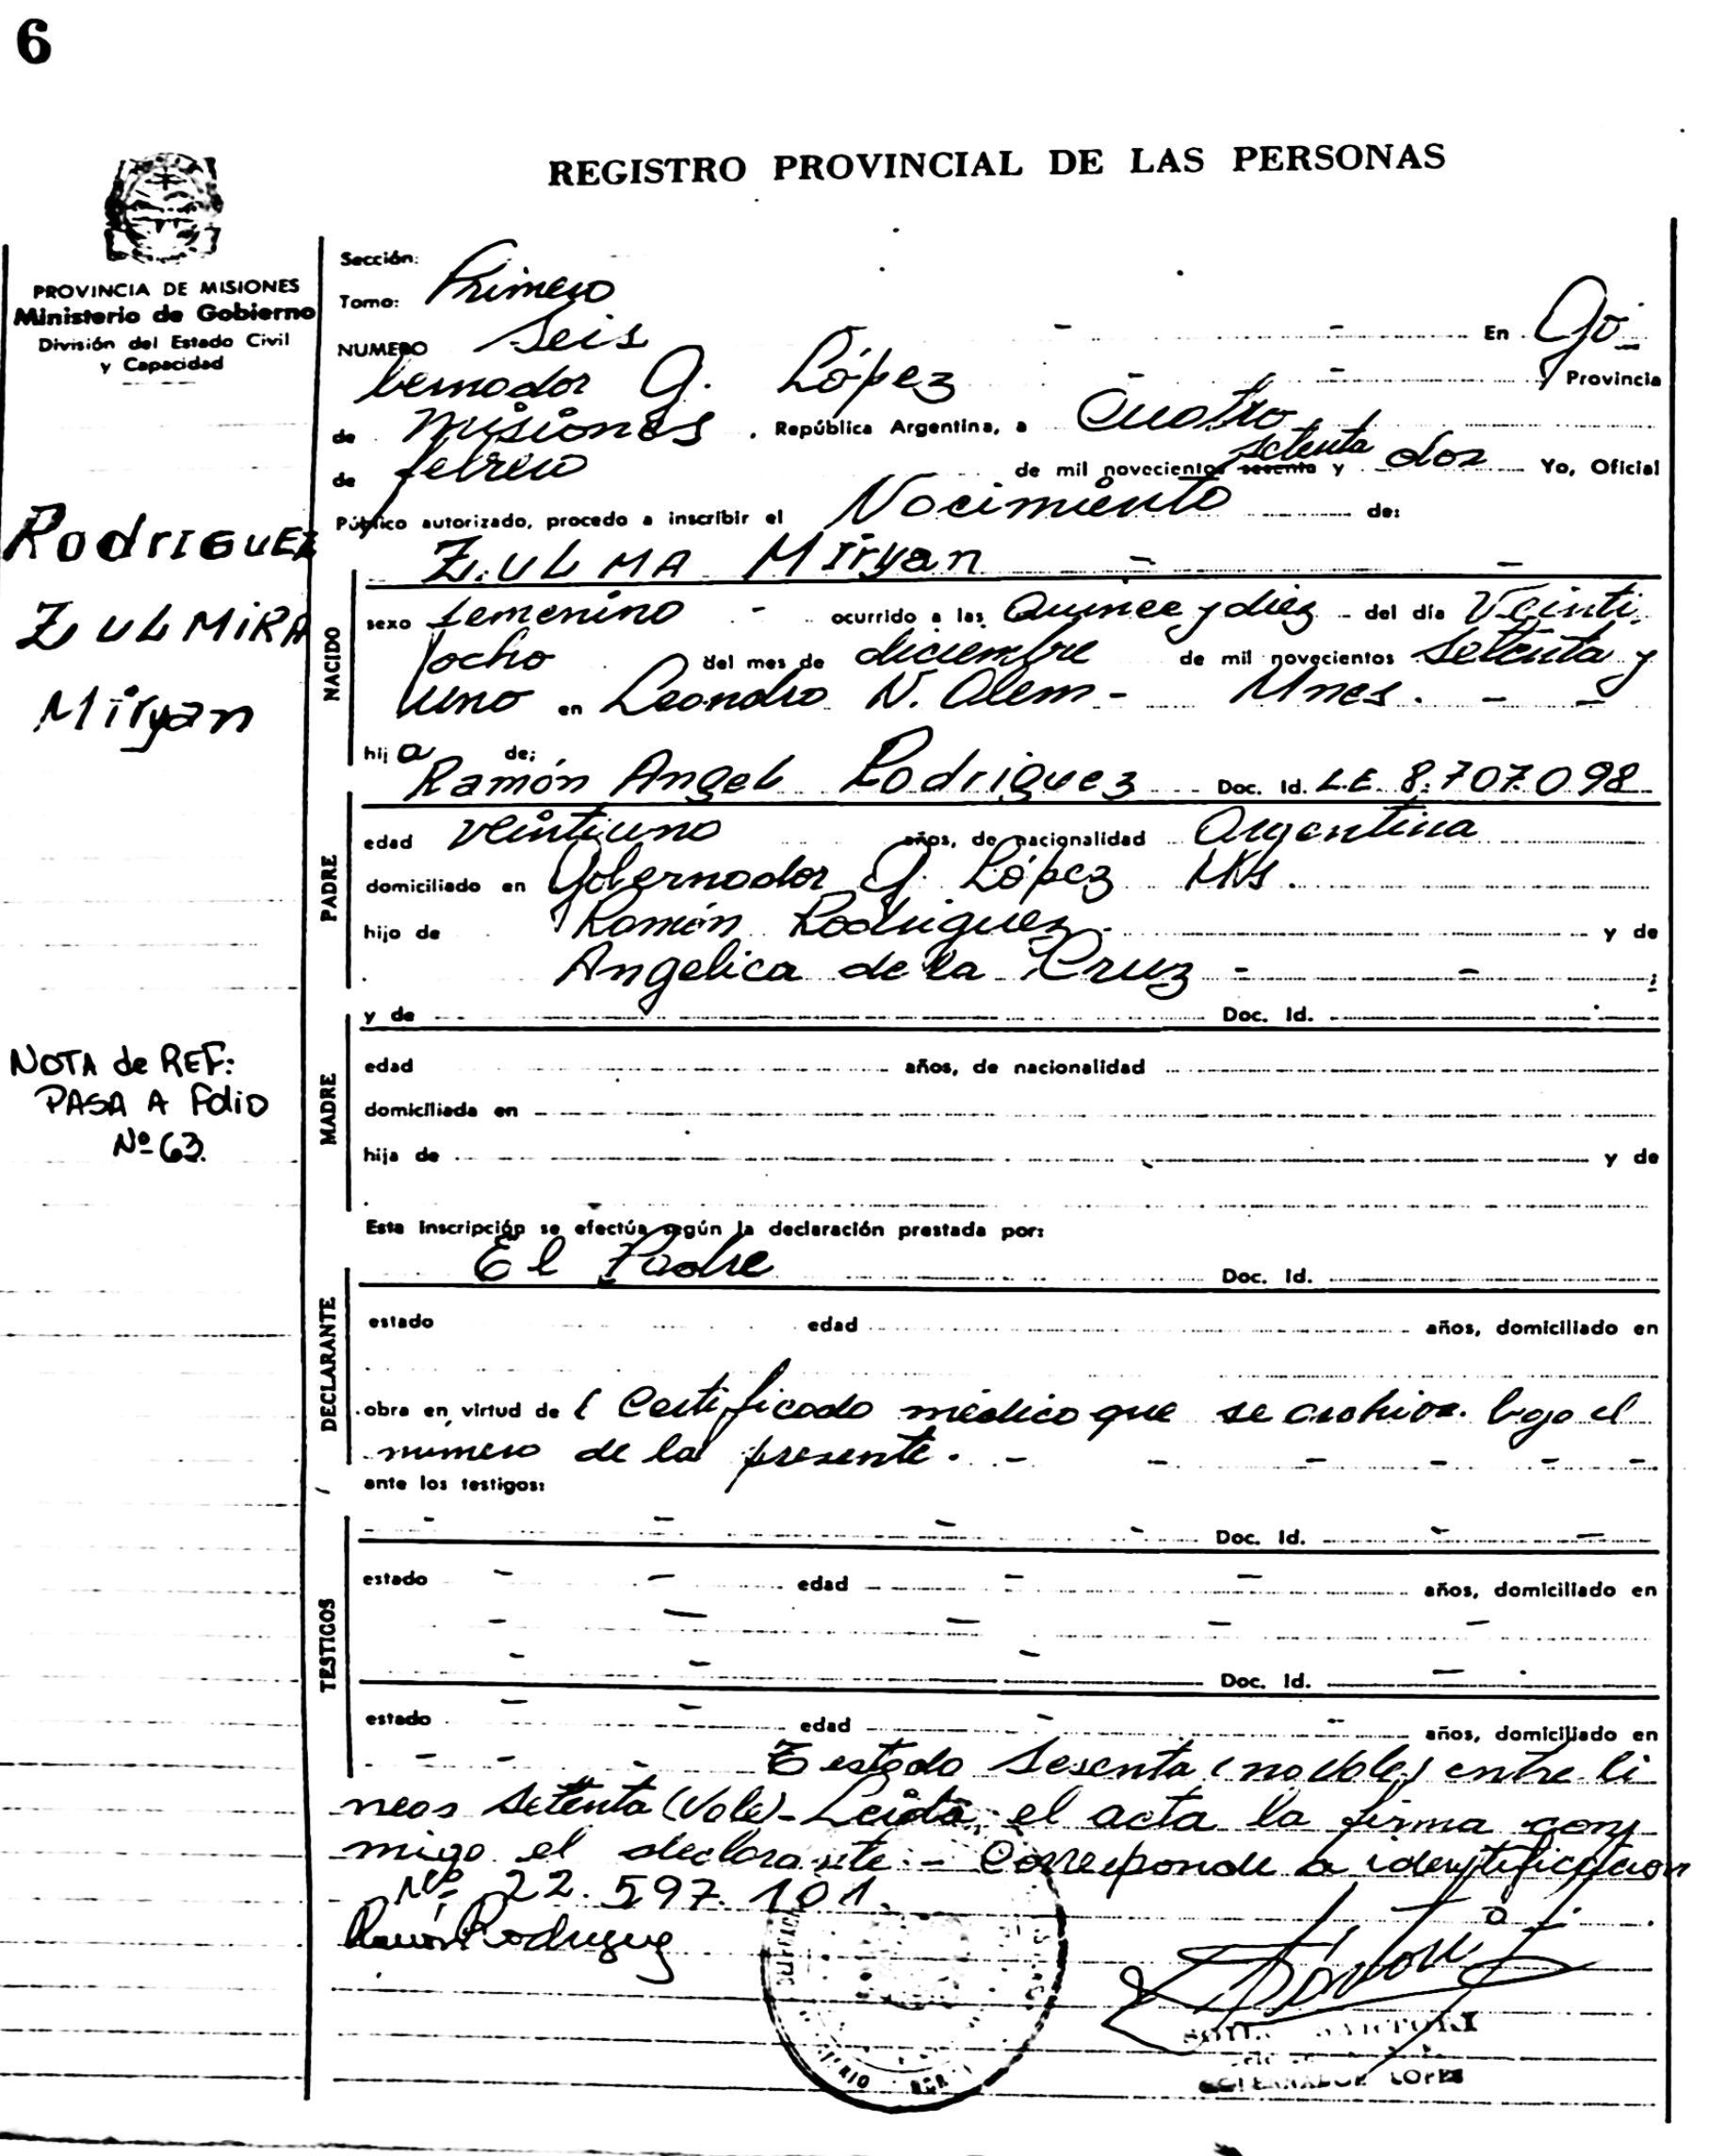 6
REGISTRO PROVINCIAL DE LAS PERSONAS
PROVINCIA DE MISIONES
Ministerio de Gobierno
División del Estado Civil
y Capacidad
Rodriguez
ZULMIRA
Miryan
NOTA de REF:
PASA A Folio
Nº 63.
Sección:
Tomo: Primero
NUMERO Seis - - En Go-
bernador G. López - - Provincia
de Misiones . República Argentina, a Cuatro
de febrero de mil novecientos sesenta setenta y dos Yo, Oficial
Público autorizado, procedo a inscribir el Nacimiento de:
ZULMA Miryan - -
NACIDO
sexo femenino - ocurrido a las Quince y diez - del día Veinti-
ocho del mes de diciembre de mil novecientos Setenta y
uno en Leandro N. Alem - Mnes. - -
hija de;
Ramón Angel Rodriguez Doc. Id. L.E. 8.707.098
PADRE
edad veintiuno años, de nacionalidad Argentina
domiciliado en Gobernador G. López
hijo de Ramón Rodriguez y de
Angelica de la Cruz - - ;
y de Doc. Id.
MADRE
edad años, de nacionalidad
domiciliada en
hija de y de
Esta Inscripción se efectúa según la declaración prestada por:
El Padre Doc. Id.
DECLARANTE
estado edad años, domiciliado en
obra en virtud de ( Certificado médico que se archiva bajo el
numero de la presente. - - - - - -
ante los testigos:
- - - - Doc. Id. - -
TESTIGOS
estado - - edad - - años, domiciliado en
- - - - -
- - - Doc. Id. -
estado - - edad - - años, domiciliado en
- - - Testado Sesenta (no vale) entre li
neas Setenta (Vale) - Leida el acta la firma con-
migo el declarante. - Corresponde a identificacion
Nº 22.597.101.
Ramón Rodriguez
GOBERNADOR LOPEZ